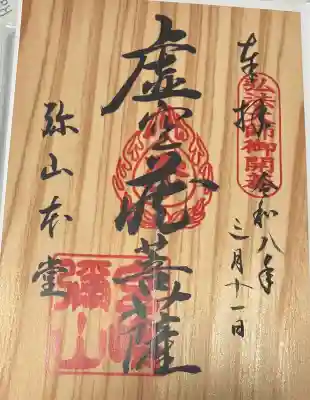 奉拝
弘法大師御開基
令和八年
三月十一日
虚空蔵菩薩
弥山本堂
宮島
彌山